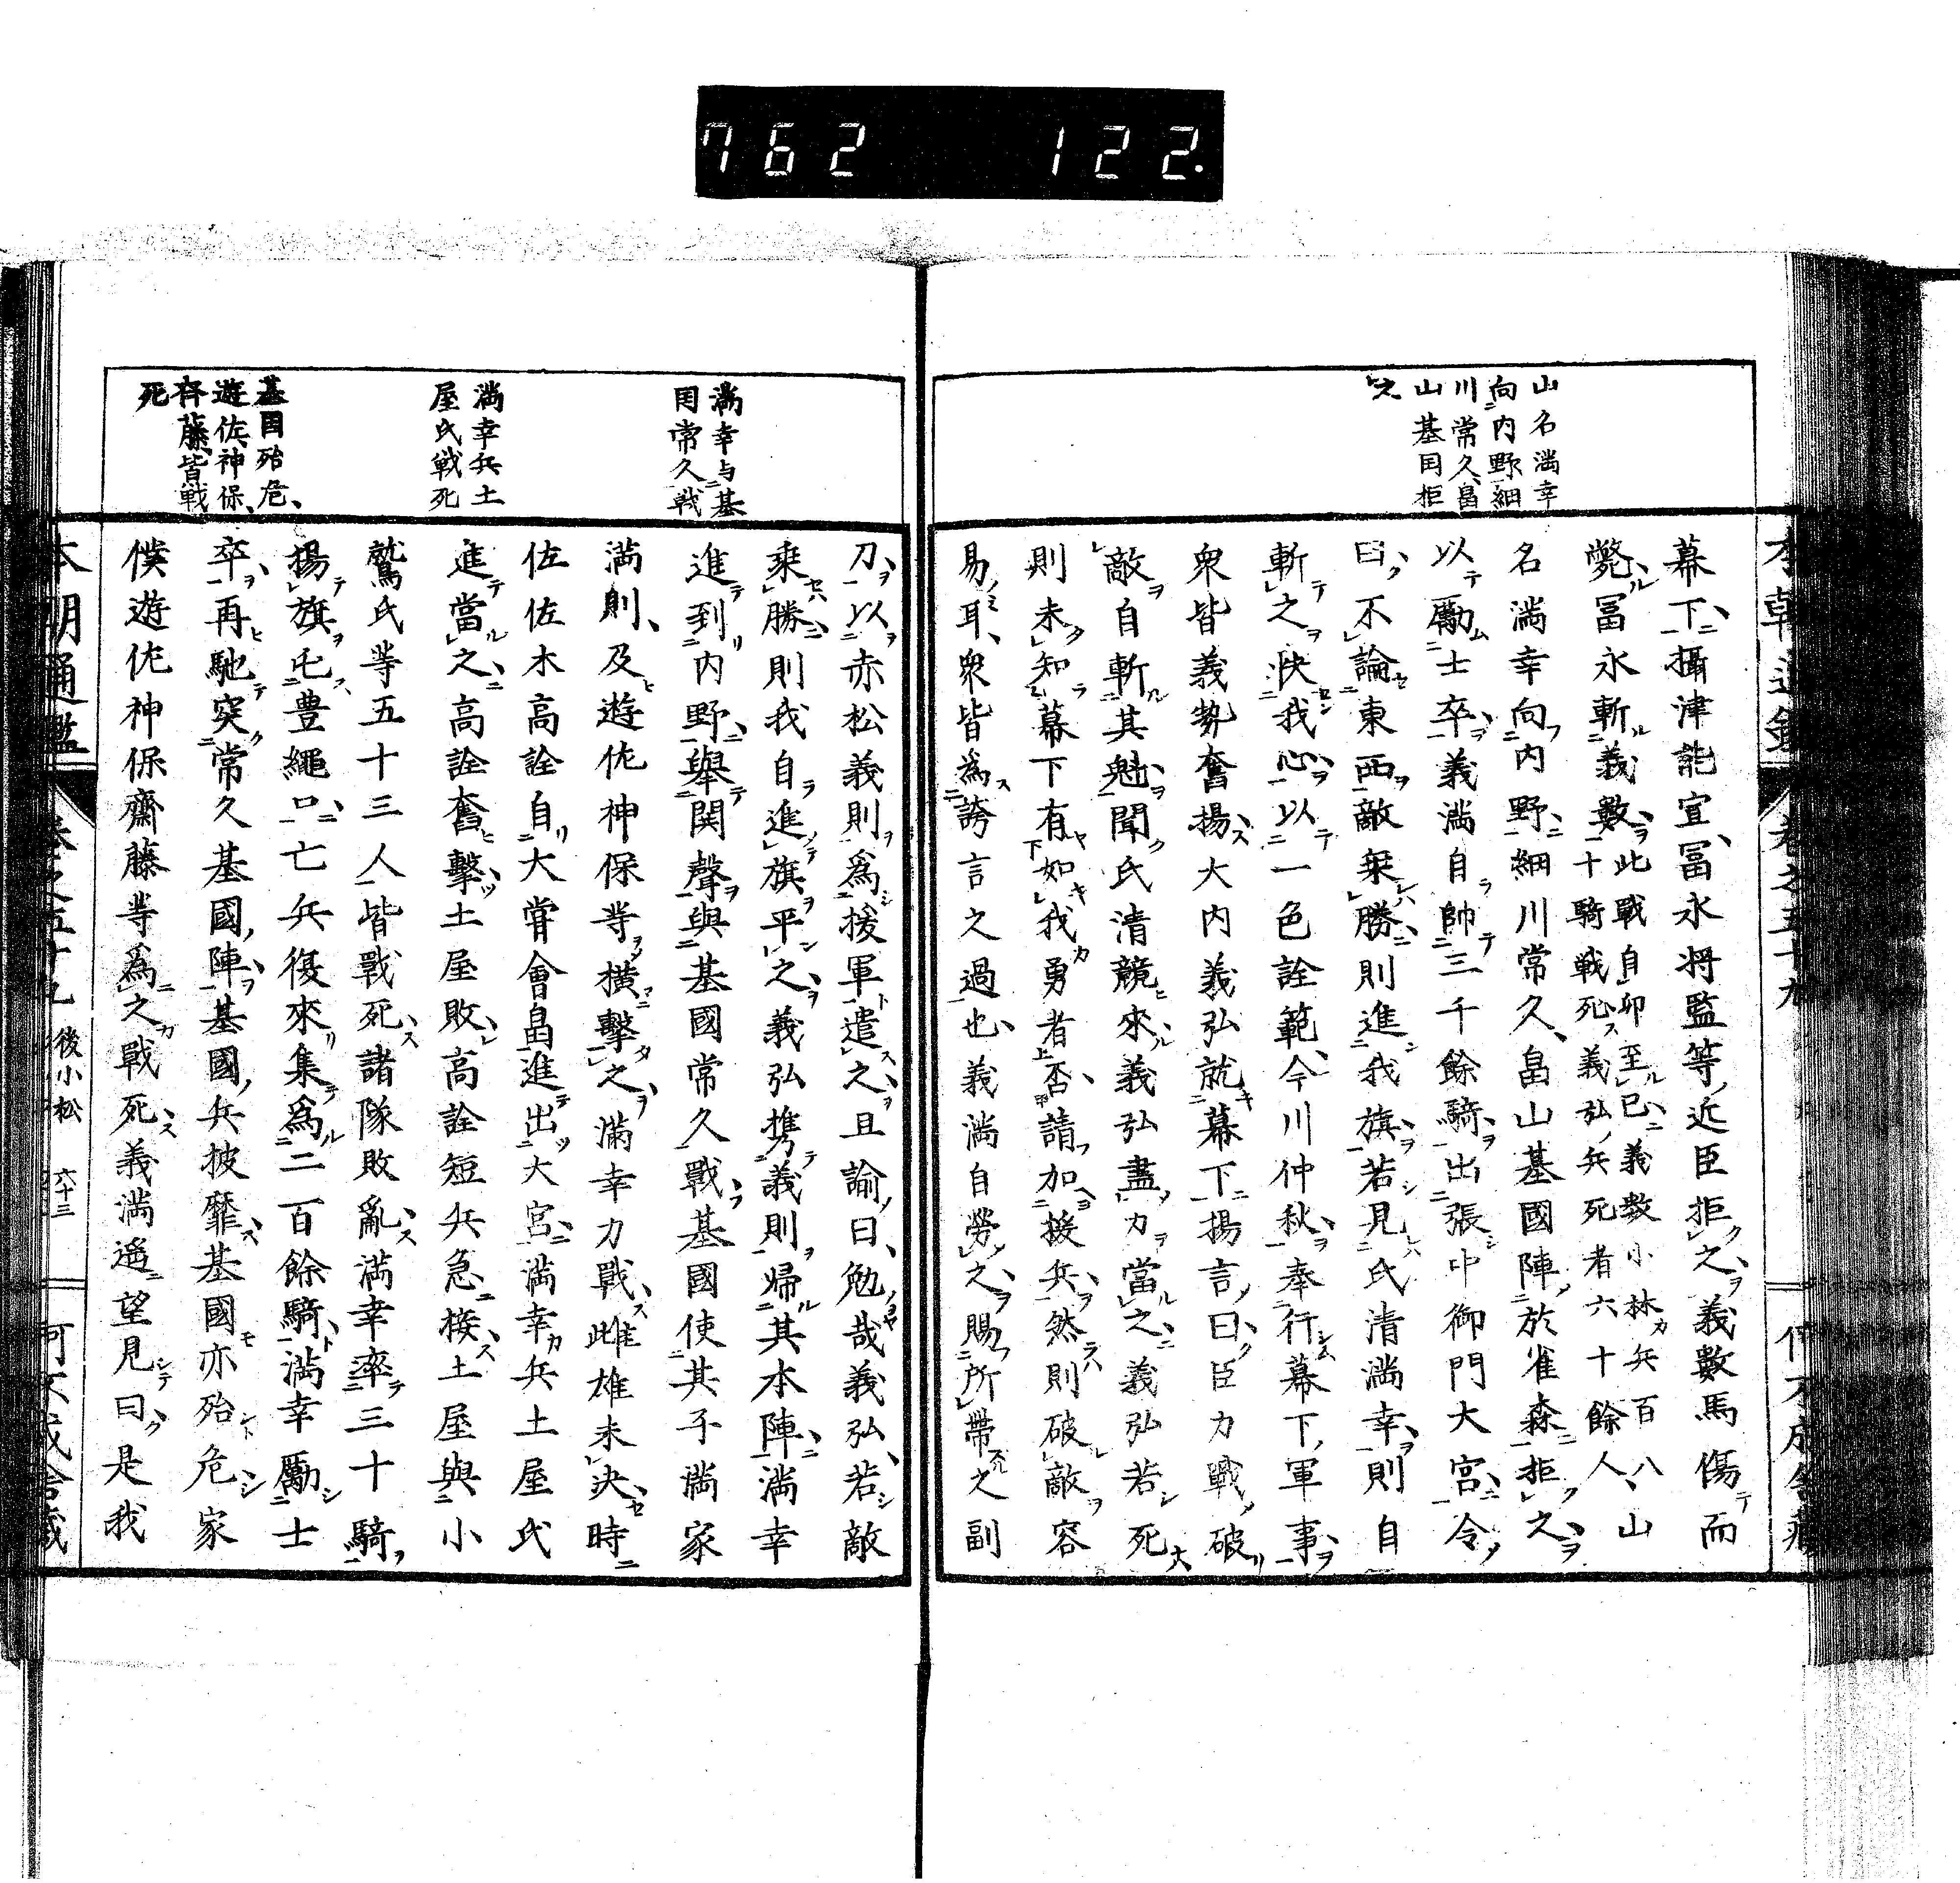 762 122.
山名満幸
向内野細
川常久畠
山基囯拒
之
幕下攝津能宣冨永将監等近臣拒之義數馬傷而
斃冨永斬義數此戰自卯至巳義数小林兵百八
十騎戦死義弘兵死者六十餘人山
名満幸向内野細川常久畠山基國陣於雀森拒之
以勵士卒義満自帥三千餘騎出張中御門大宮令
曰不論東西敵乗勝則進我旗若見氏清満幸則自
斬之快我心以一色詮範今川仲秋奉行幕下軍事
衆皆義勢奮揚大内義弘就幕下揚言曰臣力戰破
敵自斬其魁聞氏清競來義弘盡力當之義弘若死
則未知幕下有如我勇者否請加援兵然則破敵容
易耳衆皆為誇言之過也義満自勞之賜所帶之副
満幸与基
囯常久戦
満幸兵土
屋氏戦死
基囯殆危
遊佐神保
斉藤皆戦
死
刀以赤松義則爲援軍遣之且諭曰勉哉義弘若敵
乗勝則我自進旗平之義弘携義則帰其本陣満幸
進到内野舉鬨聲與基國常久戰基國使其子満家
満則及遊佐神保等横擊之滿幸力戰雌雄未決時
佐佐木高詮自大甞會畠進出大宮満幸兵土屋氏
進當之高詮奮擊土屋敗高詮短兵急接土屋與小
鴛氏等五十三人皆戰死諸隊敗亂満幸率三十騎
揚旗屯豊繩口亡兵復來集爲二百餘騎満幸勵士
卒再馳突常久基國陣基國兵披靡基國亦殆危家
僕遊佐神保齋藤等爲之戰死義満遥望見曰是我
本朝通鑑 卷之五十九 後小松 六十三